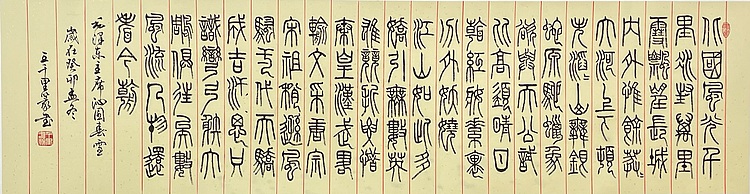 北國風光千
里冰封萬里
雪飄望長城
內外惟餘莽莽
大河上下頓
失滔滔山舞銀
蛇原馳蠟象
欲與天公試
比高須晴日
看紅妝素裹
分外妖嬈
江山如此多
嬌引無數英
雄競折腰惜
秦皇漢武略
輸文采唐宗
宋祖稍遜風
騷一代天驕
成吉汗思只
識彎弓射大
雕俱往矣數
風流人物還
看今朝
毛澤東主席沁園春雪
歲在癸卯孟冬